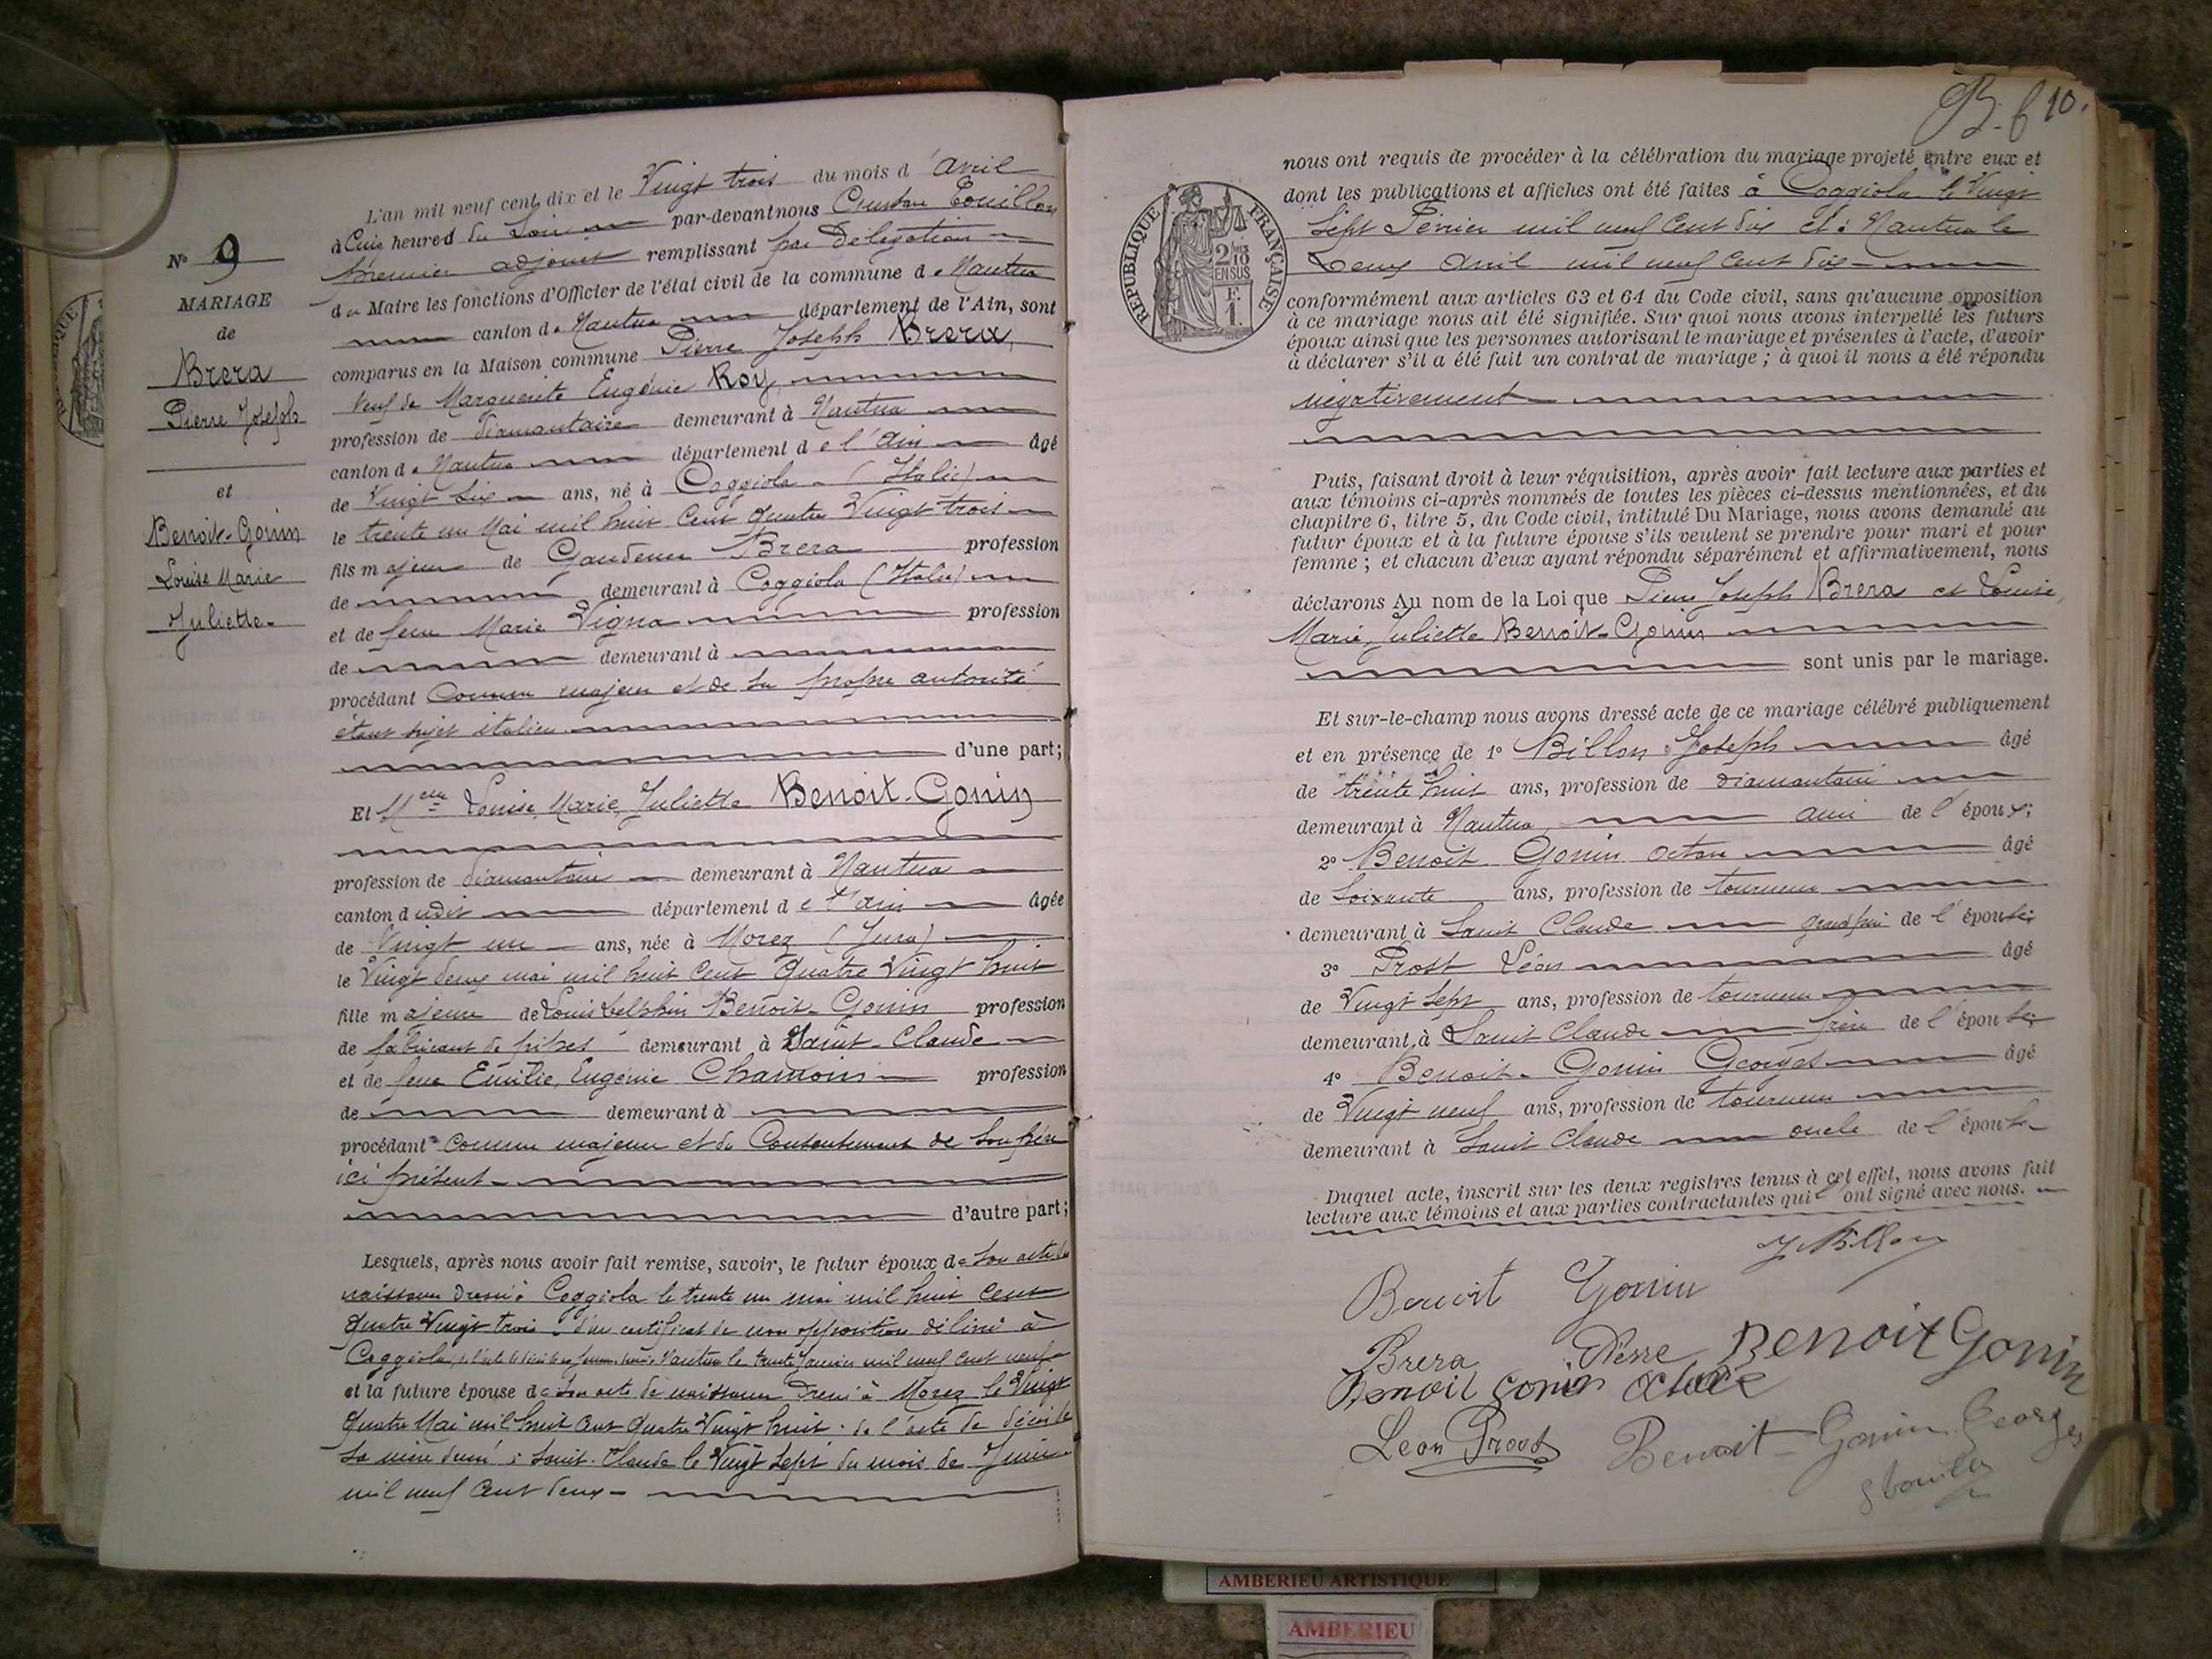 L'an mil neuf cent dix et le Vingt trois du mois d'avril
à Cinq heures du Soir par-devant nous Gustave
premier adjoint remplissant par Délégation
du Maire les fonctions d'Officier de l'état civil de la commune de Nantua
canton de Nantua département de l'Ain, sont
comparus en la Maison commune Pierre Joseph Brera,
Veuf de Marguerite Eugénie Roy,
profession de diamantaire demeurant à Nantua
canton de Nantua département de l'ain âgé
de Vingt six ans, né à Coggiola (Italie)
le trente un Mai mil huit Cent quatre Vingt trois
fils majeur de Gaudence Brera profession
de demeurant à Coggiola (Italie)
et de feue Marie Vigna profession
de demeurant à
procédant Comme majeur et de sa propre autorité
étant sujet italien
d'une part;
Et Melle Louise, Marie, Juliette Benoit-Gonin
profession de diamantaire demeurant à Nantua
canton dudit département de l'ain âgée
de Vingt un ans, née à Morez (Jura)
le Vingt deux mai mil huit Cent Quatre Vingt huit
fille majeure de Louis Delphin Benoit-Gonin profession
de fabricant de pipes demeurant à Saint-Claude
et de feue Emilie, Eugénie Chamoin profession
de demeurant à
procédant comme majeure et du Consentement de son père
ici présent
d'autre part;
Lesquels, après nous avoir fait remise, savoir, le futur époux de son acte de
naissance dressé à Coggiola le trente un mai mil huit Cent
quatre Vingt trois d'un certificat de non opposition délivré à
Coggiola, de l'acte de décès de sa femme, dressé à Nantua le trente Janvier mil neuf cent neuf
et la future épouse de son acte de naissance dressé à Morez le Vingt
Quatre Mai mil huit Cent Quatre Vingt huit de l'acte de décès de
sa mère dressé à Saint-Claude le Vingt sept du mois de Juin
mil neuf Cent deux
No 9
MARIAGE
de
Brera
Pierre Joseph
et
Benoit-Gonin
Louise Marie
Juliette
10.
nous ont requis de procéder à la célébration du mariage projeté entre eux et
dont les publications et affiches ont été faites à Coggiola le Vingt
Sept Février mil neuf Cent dix et à Nantua le
Deux avril mil neuf Cent dix
REPUBLIQUE FRANÇAISE
2/10 EN SUS
F.
1.
conformément aux articles 63 et 64 du Code civil, sans qu'aucune opposition
à ce mariage nous ait été signifiée. Sur quoi nous avons interpellé les futurs
époux ainsi que les personnes autorisant le mariage et présentes à l'acte, d'avoir
à déclarer s'il a été fait un contrat de mariage; à quoi il nous a été répondu
négativement
Puis, faisant droit à leur réquisition, après avoir fait lecture aux parties et
aux témoins ci-après nommés de toutes les pièces ci-dessus mentionnées, et du
chapitre 6, titre 5, du Code civil, intitulé Du Mariage, nous avons demandé au
futur époux et à la future épouse s'ils veulent se prendre pour mari et pour
femme; et chacun d'eux ayant répondu séparément et affirmativement, nous
déclarons Au nom de la Loi que Pierre Joseph Brera et Louise,
Marie, Juliette Benoit-Gonin
sont unis par le mariage.
Et sur-le-champ nous avons dressé acte de ce mariage célébré publiquement
et en présence de 1º Billon Joseph âgé
de trente huit ans, profession de diamantaire
demeurant à Nantua ami de l'époux;
2º Benoit Gonin Octave âgé
de Soixante ans, profession de tourneur
demeurant à Saint Claude grand père de l'épouse;
3º Prost Léon âgé
de Vingt sept ans, profession de tourneur
demeurant à Saint Claude frère de l'épouse;
4º Benoit-Gonin Georges âgé
de Vingt neuf ans, profession de tourneur
demeurant à Saint Claude oncle de l'épouse
Duquel acte, inscrit sur les deux registres tenus à cet effet, nous avons fait
lecture aux témoins et aux parties contractantes qui ont signé avec nous.
J. Billon
Benoit Gonin
Brera Pierre Benoit Gonin
Benoit Gonin Octave
Léon Prost Benoit-Gonin Georges
AMBERIEU ARTISTIQUE
AMBERIEU